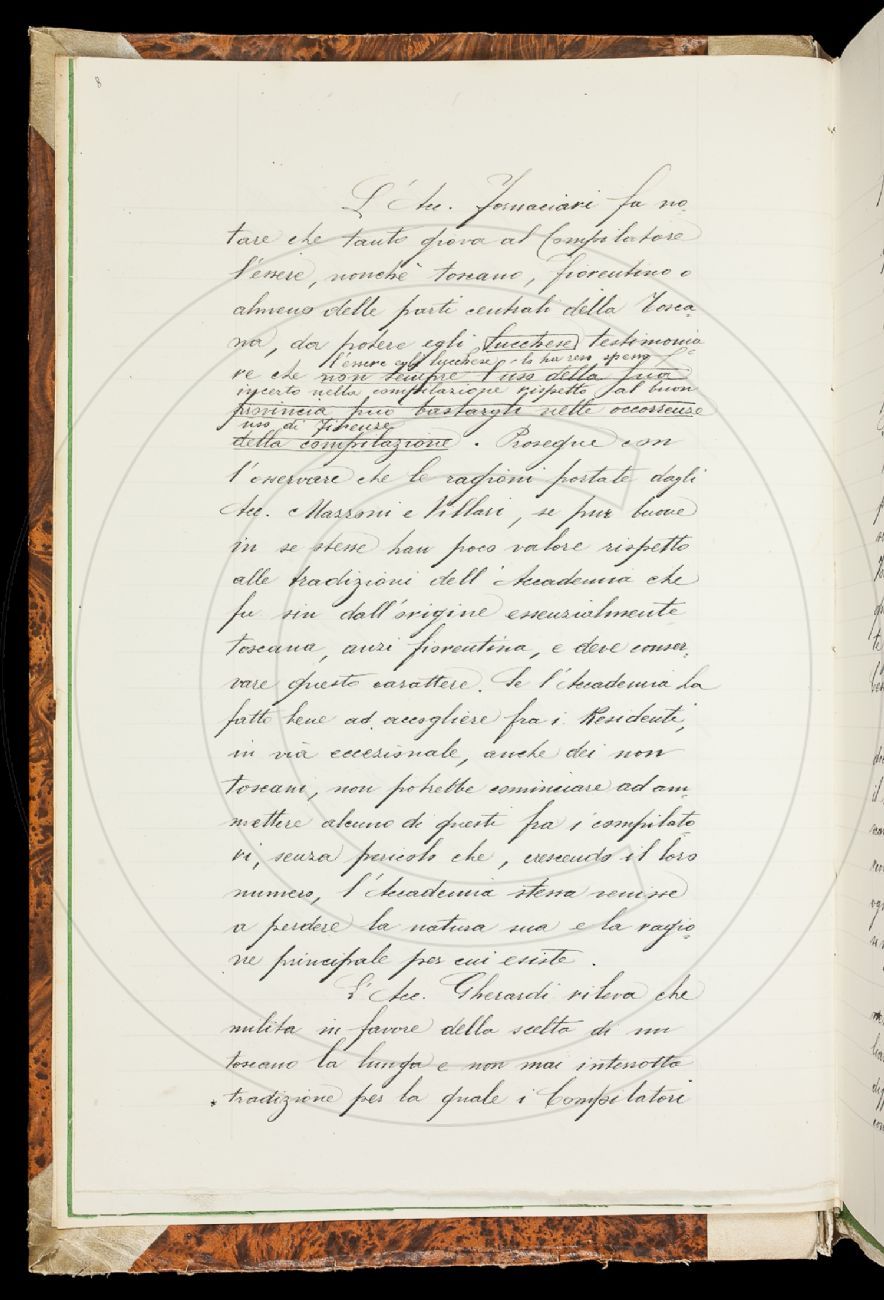 8
L'Acc. Fornaciari fa no-
tare che tanto giova al Compilatore
l'essere, nonchè toscano, fiorentino o
almeno delle parti centrali della Tosca-
na, da potere egli, lucchese, testimonia-
l'essere egli lucchese, lo ha reso spesso
re che non sempre l'uso della sua
incerto nella compilazione rispetto al buon
provincia può bastargli nelle occorrenze
uso di Firenze
della compilazione. Prosegue con
l'osservare che le ragioni portate dagli
Acc. Mazzoni e Villari, se pur buone
in se stesse han poco valore rispetto
alle tradizioni dell'Accademia che
fu sin dall'origine essenzialmente
toscana, anzi fiorentina, e deve conser-
vare questo carattere. Se l'Accademia ha
fatto bene ad accogliere fra i Residenti,
in via eccezionale, anche dei non
toscani, non potrebbe cominciare ad am-
mettere alcuno di questi fra i compilato-
ri, senza pericolo che, crescendo il loro
numero, l'Accademia stessa venisse
a perdere la natura sua e la ragio-
ne principale per cui esiste.
L'Acc. Gherardi rileva che
milita in favore della scelta di un
toscano la lunga e non mai interrotta
tradizione per la quale i Compilatori